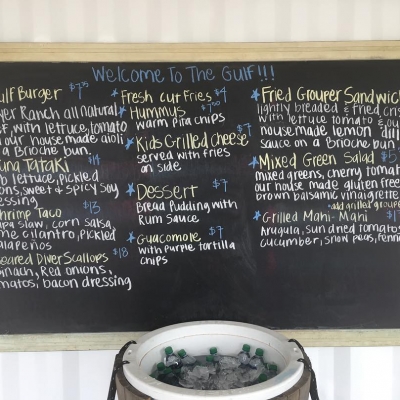 Welcome To The Gulf!!!
ulf Burger $7.95
yer Ranch all natural
f, with lettuce, tomato
our house made aioli
a Brioche bun.
una Tataki $14
b lettuce, pickled
ions, sweet & spicy soy
essing
hrimp Taco $13
apa slaw, corn salsa
me cilantro, pickled
alapeños
eared Diver Scallops $18
inach, Red onions,
matos, bacon dressing
Fresh cut Fries $4
Hummus
warm pita chips
Kids Grilled Cheese $7
served with fries
on side
Dessert $7
Bread Pudding with
Rum Sauce
Guacamole $9
with purple tortilla
chips
Fried Grouper Sandwich
lightly breaded & fried cris
with lettuce tomato & ou
housemade lemon dill
sauce on a Brioche bun
Mixed Green Salad $
mixed greens, cherry tomato
our house made gluten free
brown balsamic vinaigrette
add grilled grouper
Grilled Mahi-Mahi $1
Arugula, sun dried tomatos
cucumber, snow peas, fenne